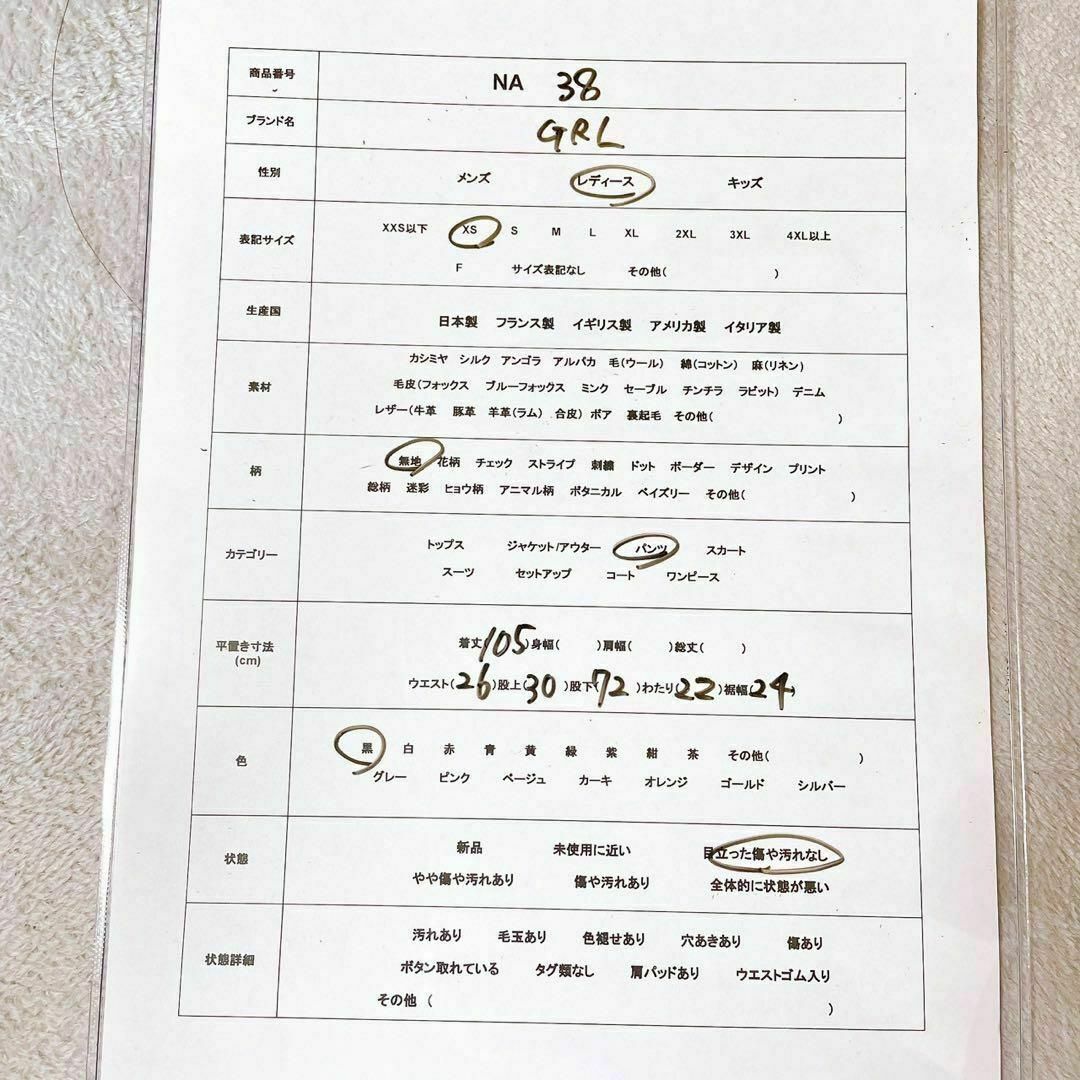 商品番号 NA 38
ブランド名 GRL
性別 メンズ レディース キッズ
表記サイズ XXS以下 XS S M L XL 2XL 3XL 4XL以上
F サイズ表記なし その他( )
生産国 日本製 フランス製 イギリス製 アメリカ製 イタリア製
素材 カシミヤ シルク アンゴラ アルパカ 毛(ウール) 綿(コットン) 麻(リネン)
毛皮(フォックス ブルーフォックス ミンク セーブル チンチラ ラビット) デニム
レザー(牛革 豚革 羊革(ラム) 合皮) ボア 裏起毛 その他( )
柄 無地 花柄 チェック ストライプ 刺繍 ドット ボーダー デザイン プリント
総柄 迷彩 ヒョウ柄 アニマル柄 ボタニカル ペイズリー その他( )
カテゴリー トップス ジャケット/アウター パンツ スカート
スーツ セットアップ コート ワンピース
平置き寸法 (cm) 着丈(105)身幅( )肩幅( )総丈( )
ウエスト(26)股上(30)股下(72)わたり(22)裾幅(24)
色 黒 白 赤 青 黄 緑 紫 紺 茶 その他( )
グレー ピンク ベージュ カーキ オレンジ ゴールド シルバー
状態 新品 未使用に近い 目立った傷や汚れなし
やや傷や汚れあり 傷や汚れあり 全体的に状態が悪い
状態詳細 汚れあり 毛玉あり 色褪せあり 穴あきあり 傷あり
ボタン取れている タグ類なし 肩パッドあり ウエストゴム入り
その他 ( )